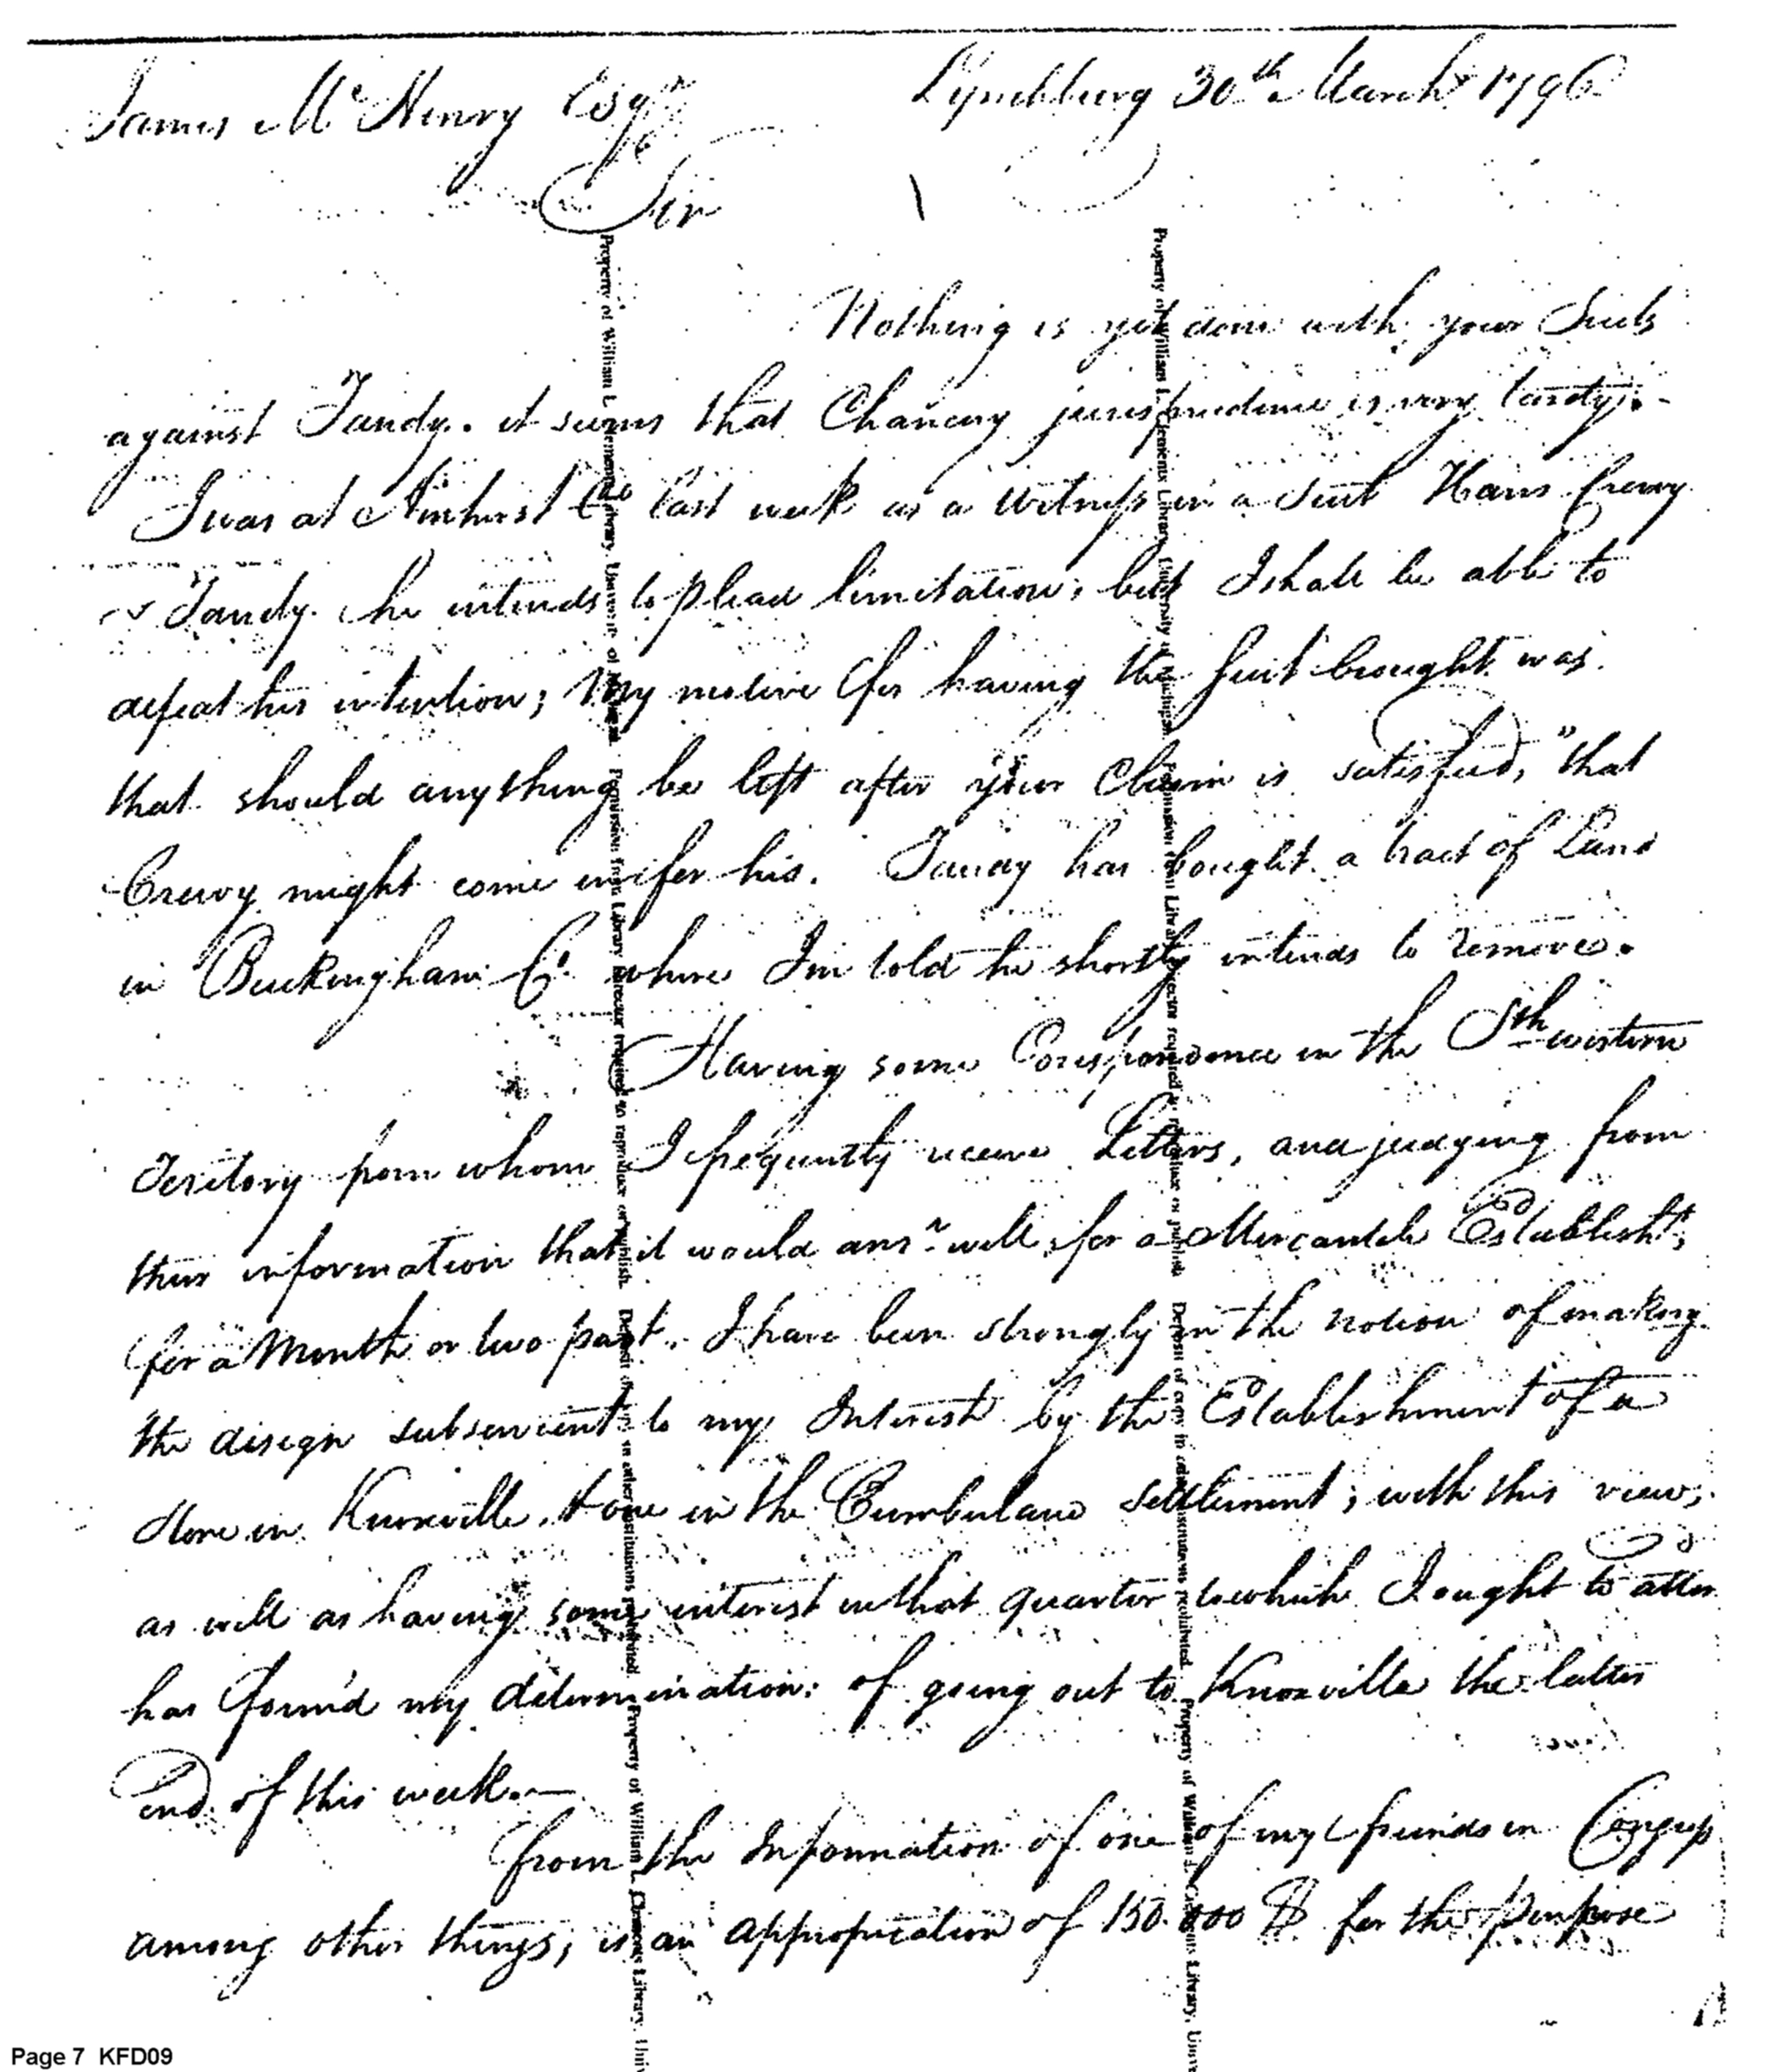 Lynchburg 30th March 1796
James McHenry Esqr
Sir
Nothing is yet done with your Suits
against Tandy. it seems that Chancery jurisprudence is very tardy.-
I was at Amherst Ct last week as a Witness in a Suit Hans Crewy
vs Tandy. he intends to plead limitation; but I shall be able to
defeat his intention; My motive for having the suit brought was
that should anything be left after your Claim is satisfied, "that
Crewy might come in for his. Tandy has bought a tract of Land
in Buckingham Cy. where Im told he shortly intends to remove.
Having some Corespondence in the Sth western
Teritory from whom I frequently receive Letters, and judging from
their information that it would ansr. well for a Mercantile Establisht,
for a Month or two past. I have been strongly in the notion of making
the design subservient to my Interest by the Establishment of a
Store in Knoxville, & one in the Cumberland Settlement; with this view,
as well as having some interest in that quarter to which I ought to atten
has form'd my determination: of going out to Knoxville the latter
end of this week.—
from the Information of one of my friends in Congress
among other things, is an appropriation of 150.000 $ for the purpose
Property of William L. Clements Library, University of Michigan. Permission from Library Director required to reproduce or publish. Deposit of copy in other institutions prohibited. Property of William L. Clements Library, Univ
Property of William L. Clements Library, University of Michigan. Permission from Library Director required to reproduce or publish. Deposit of copy in other institutions prohibited. Property of William L. Clements Library, Univ
Page 7 KFD09